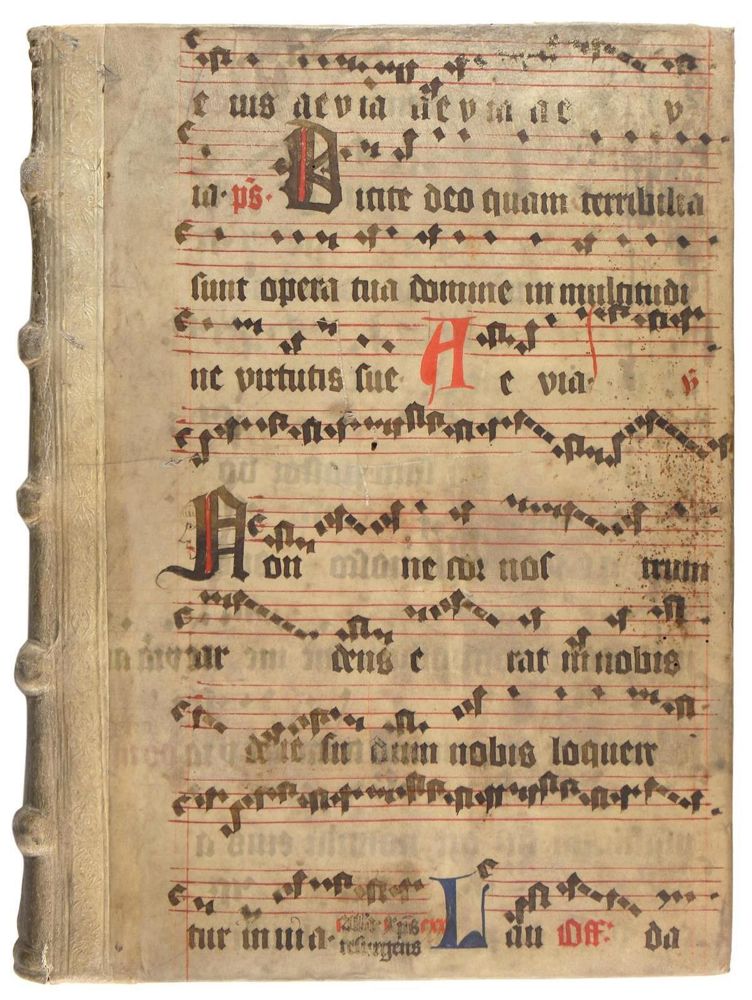 e ius aevia aevia ae v
ia. ps. Dicite deo quam terribilia
sunt opera tua domine in multitudi
ne virtutis sue A e via.
Non ne cor nos trum
ar dens e rat in nobis
de ie su dum nobis loquere
tur in via. resurgens Lau Off. da